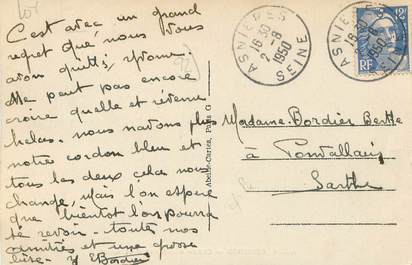 C'est avec un grand
regret que nous vous
avons quitté,
Me peut pas encore
croire quelle et revenue
helas. nous navons plus
notre cordon bleu et
tous les deux cela nous
change, mais l'on espere
que bientot l'on pourra
se revoir - toutes nos
amitiés et une grosse
bise - Bordier
ASNIERES
16 30
2 - 8
1950
SEINE
ASNIERES
16
1950
SEINE
12F
RF
Abeille-Cartes, Paris
Madame Bordier Berthe
à Pontvallain
Sarthe